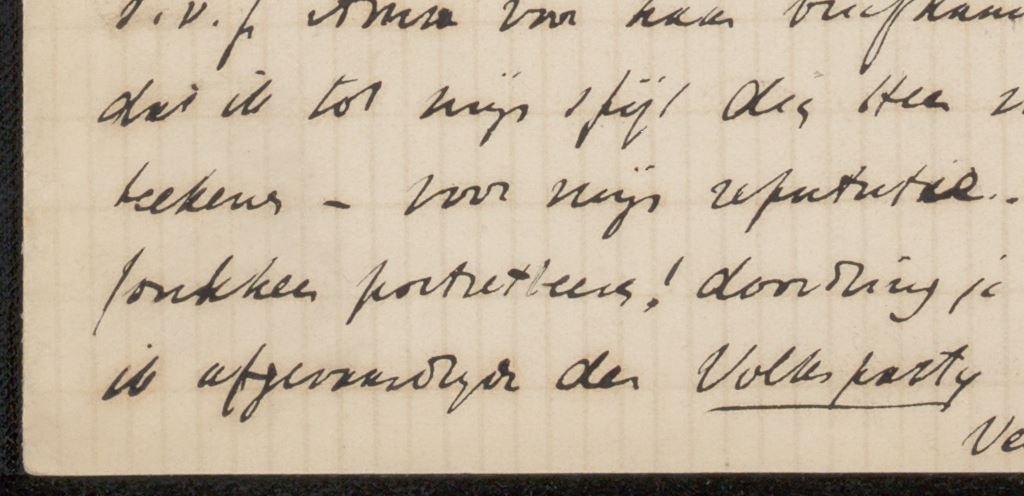 Anna voor haar briefkaart
dat ik tot mijn spijt dien Heer
teekenen - voor mijn reputatie.
Jonkheer portretteeren! doordring je
ik afgevaardigde der Volksparty
Ve